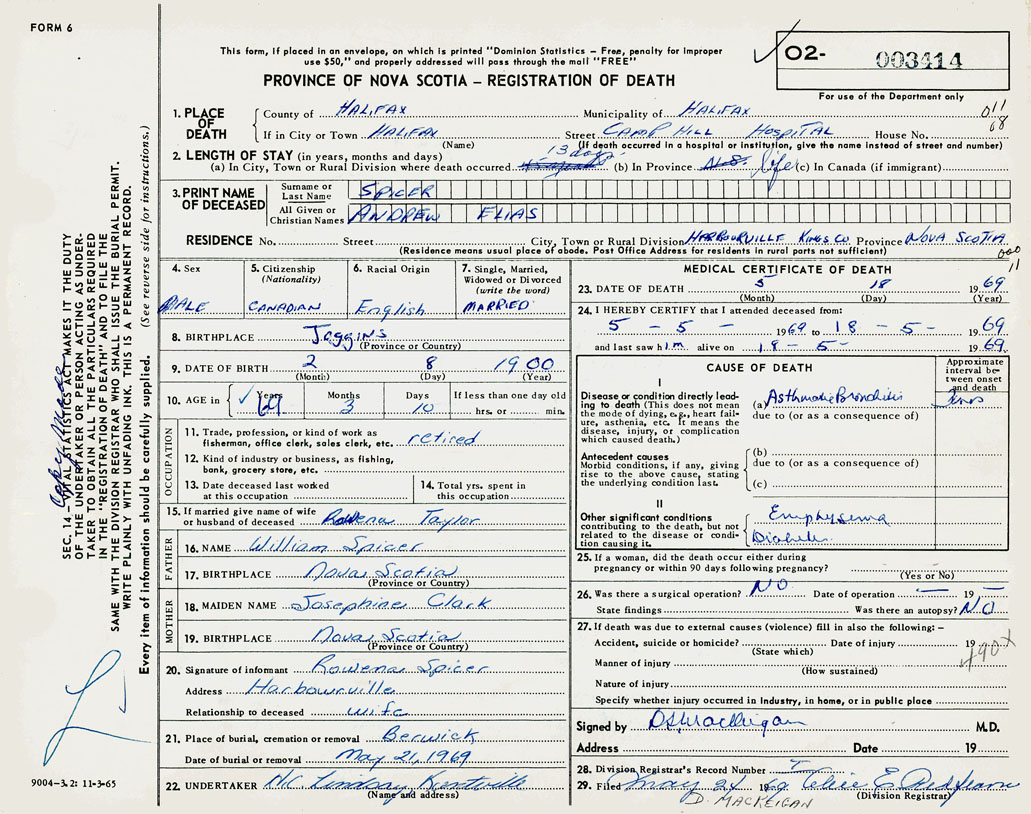 FORM 6
This form, if placed in an envelope, on which is printed "Dominion Statistics – Free, penalty for improper
use $50," and properly addressed will pass through the mail "FREE"
PROVINCE OF NOVA SCOTIA – REGISTRATION OF DEATH
O2- 003414
For use of the Department only
011
68
1. PLACE OF DEATH
County of HALIFAX Municipality of HALIFAX
If in City or Town HALIFAX Street CAMP HILL HOSPITAL House No.
(Name) (If death occurred in a hospital or institution, give the name instead of street and number)
2. LENGTH OF STAY (in years, months and days)
13 days
(a) In City, Town or Rural Division where death occurred (b) In Province N.S. life (c) In Canada (if immigrant)
3. PRINT NAME OF DECEASED
Surname or Last Name SPICER
All Given or Christian Names ANDREW ELIAS
RESIDENCE No. Street City, Town or Rural Division HARBOURVILLE KINGS CO. Province NOVA SCOTIA
(Residence means usual place of abode. Post Office Address for residents in rural parts not sufficient)
000
11
4. Sex MALE
5. Citizenship (Nationality) CANADIAN
6. Racial Origin English
7. Single, Married, Widowed or Divorced (write the word) MARRIED
8. BIRTHPLACE Joggins
(Province or Country)
9. DATE OF BIRTH 2 8 1900
(Month) (Day) (Year)
10. AGE in Years 69 Months 3 Days 10 If less than one day old hrs. or min.
OCCUPATION
11. Trade, profession, or kind of work as fisherman, office clerk, sales clerk, etc. retired
12. Kind of industry or business, as fishing, bank, grocery store, etc.
13. Date deceased last worked at this occupation
14. Total yrs. spent in this occupation
15. If married give name of wife or husband of deceased Rowena Taylor
FATHER
16. NAME William Spicer
17. BIRTHPLACE Nova Scotia
(Province or Country)
MOTHER
18. MAIDEN NAME Josephine Clark
19. BIRTHPLACE Nova Scotia
(Province or Country)
20. Signature of informant Rowena Spicer
Address Harbourville
Relationship to deceased wife
21. Place of burial, cremation or removal Berwick
Date of burial or removal May 21, 1969
22. UNDERTAKER Lindsay Kentville
(Name and address)
MEDICAL CERTIFICATE OF DEATH
23. DATE OF DEATH 5 18 1969
(Month) (Day) (Year)
24. I HEREBY CERTIFY that I attended deceased from:
5 – 5 – 1969 to 18 – 5 – 1969
and last saw him alive on 18 – 5 – 1969.
CAUSE OF DEATH
Approximate interval between onset and death
I
Disease or condition directly leading to death (This does not mean the mode of dying, e.g., heart failure, asthenia, etc. It means the disease, injury, or complication which caused death.)
(a) Asthmatic Bronchitis
due to (or as a consequence of)
Antecedent causes
Morbid conditions, if any, giving rise to the above cause, stating the underlying condition last.
(b)
due to (or as a consequence of)
(c)
II
Other significant conditions contributing to the death, but not related to the disease or condition causing it.
Emphysema
Diabetes
25. If a woman, did the death occur either during
pregnancy or within 90 days following pregnancy?
(Yes or No)
26. Was there a surgical operation? NO Date of operation — 19 —
State findings Was there an autopsy? NO
27. If death was due to external causes (violence) fill in also the following: –
Accident, suicide or homicide? Date of injury 19
(State which)
490X
Manner of injury
(How sustained)
Nature of injury
Specify whether injury occurred in Industry, in home, or in public place
Signed by D MacKeigan M.D.
Address Date 19
28. Division Registrar's Record Number
29. Filed May 21 1969
D. MACKEIGAN (Division Registrar)
SEC. 14.—VITAL STATISTICS ACT MAKES IT THE DUTY
OF THE UNDERTAKER OR PERSON ACTING AS UNDER-
TAKER TO OBTAIN ALL THE PARTICULARS REQUIRED
IN THE "REGISTRATION OF DEATH" AND TO FILE THE
SAME WITH THE DIVISION REGISTRAR WHO SHALL ISSUE THE BURIAL PERMIT.
WRITE PLAINLY WITH UNFADING INK. THIS IS A PERMANENT RECORD.
Every item of information should be carefully supplied. (See reverse side for instructions.)
Copy Made
9004–3.2: 11-3-65